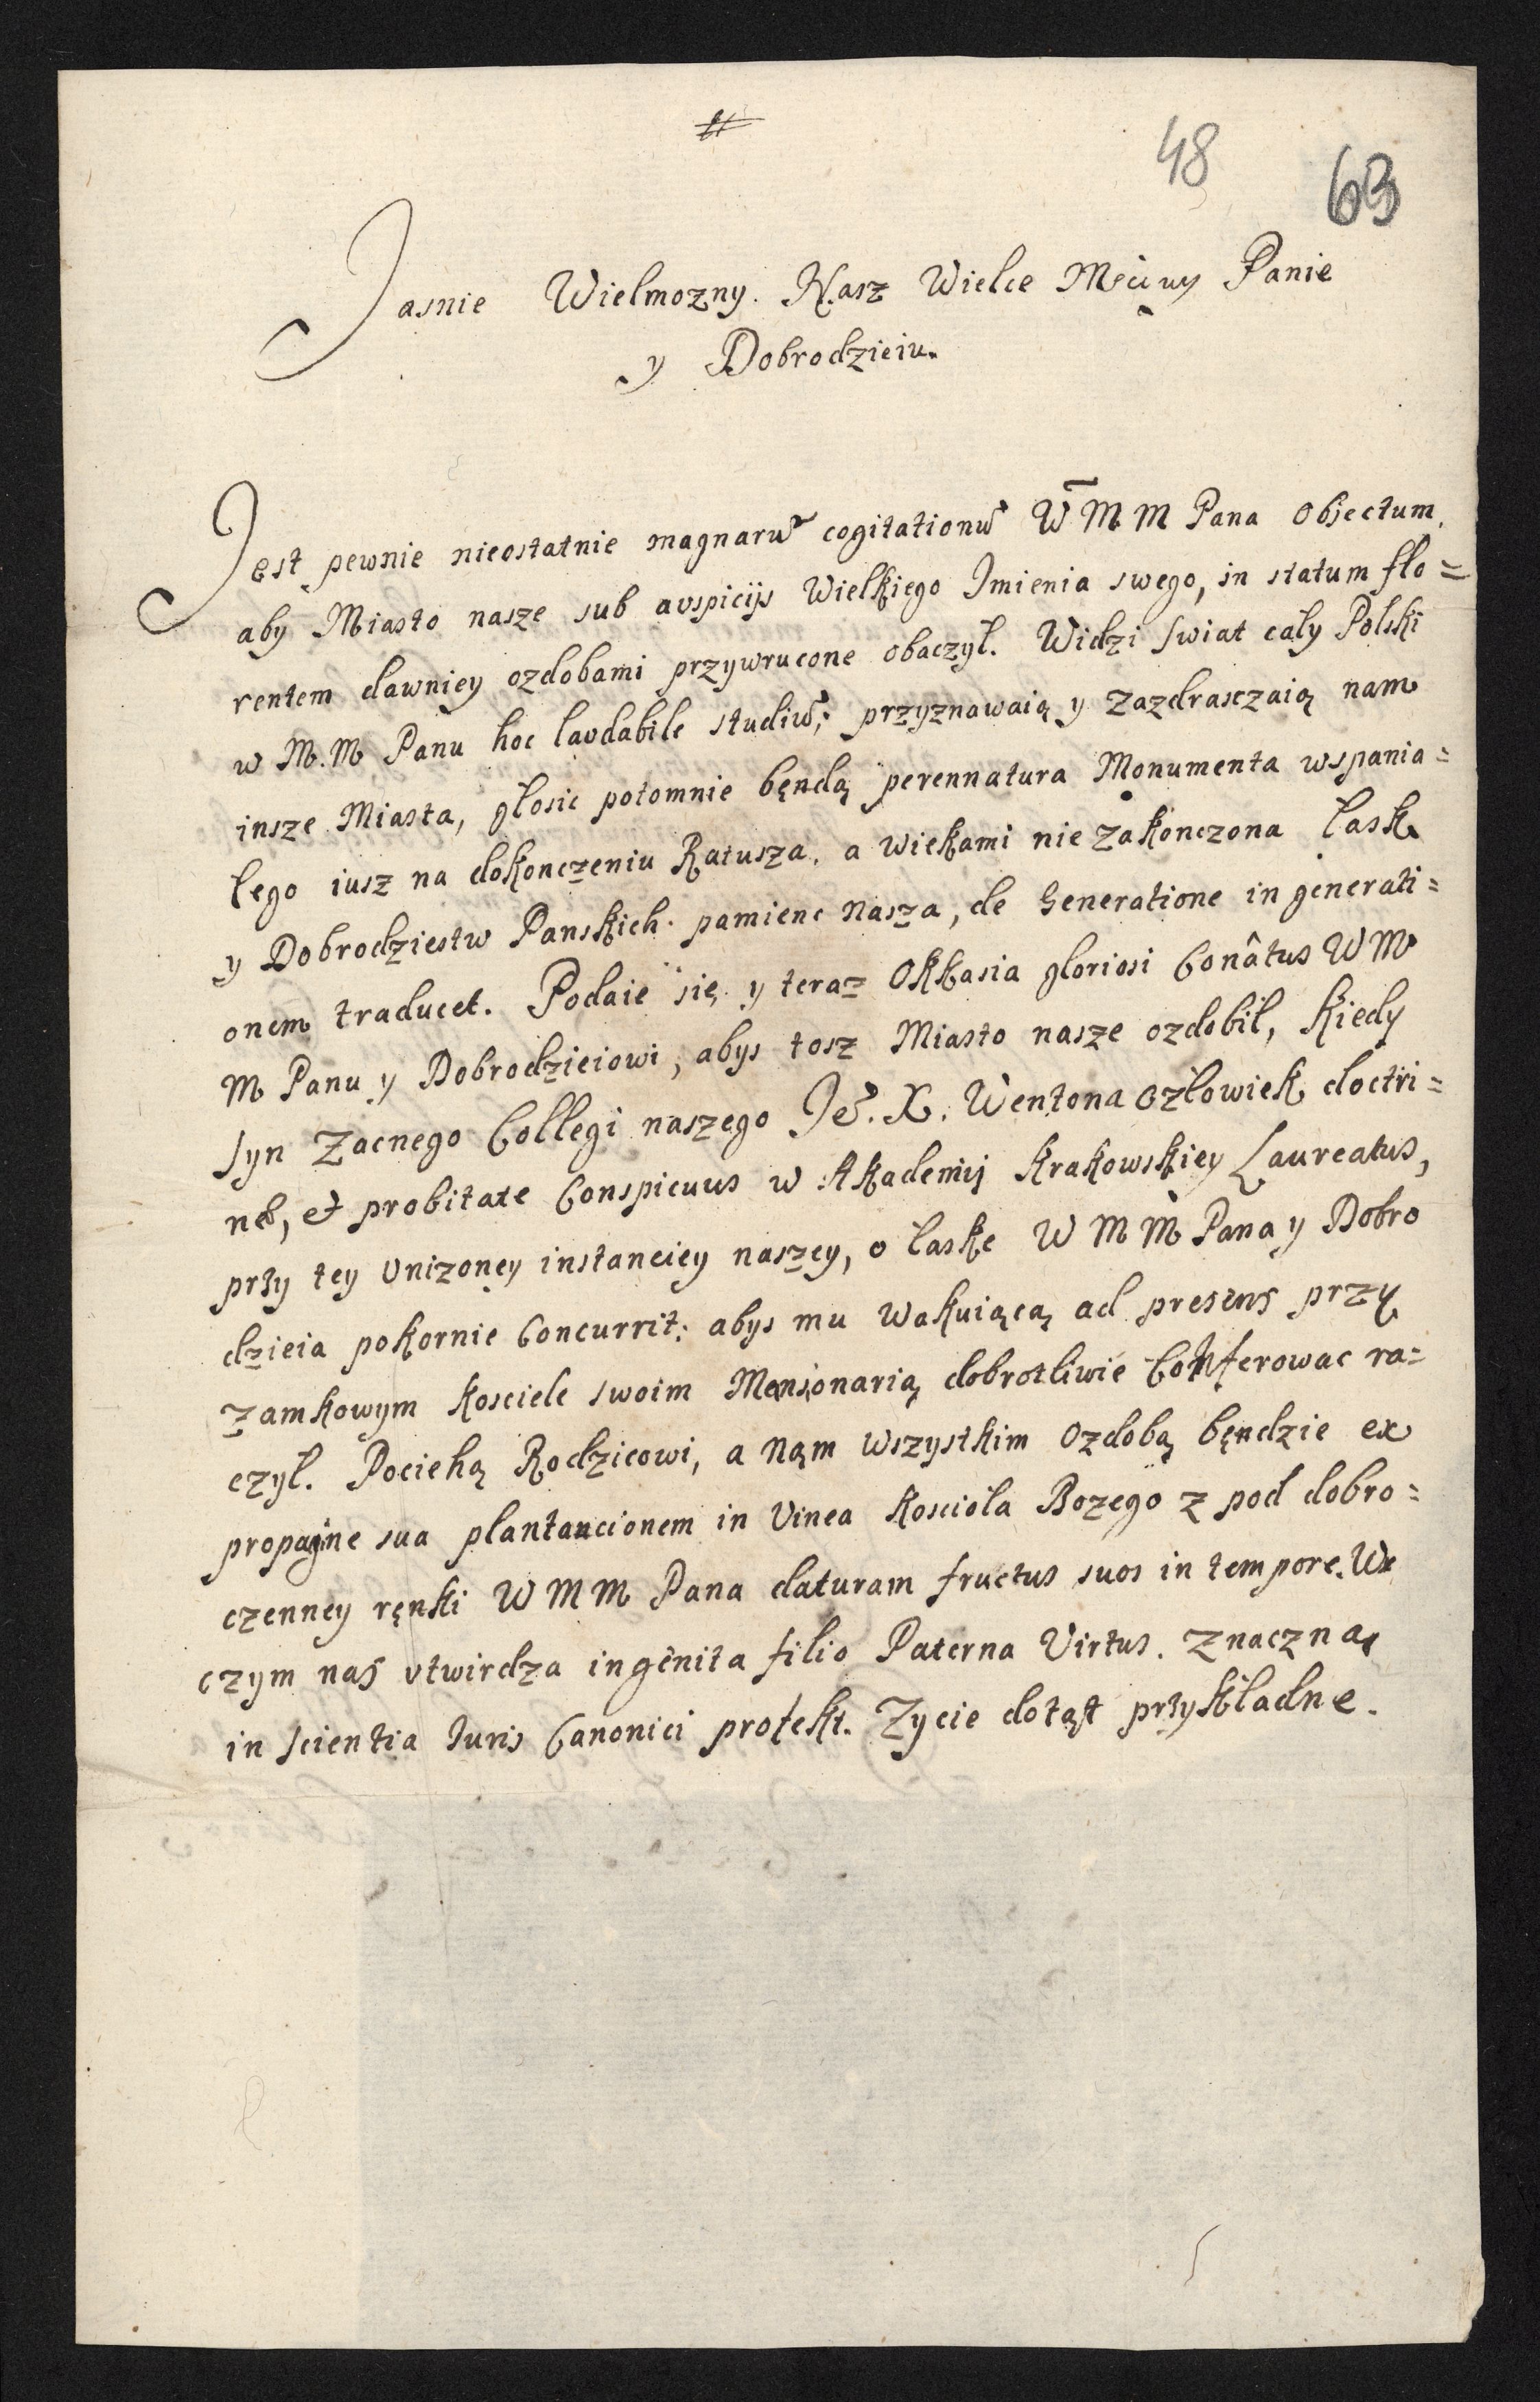 48 63
Jasnie Wielmozny. Nasz Wielce Mćiwy Panie
y Dobrodzieiu.
Jest pewnie nieostatnie magnarũ cogitationũ W̄ M M Pana Objectum,
aby Miasto nasze sub avspicijs Wielkiego Imienia swego, in statum flo=
rentem dawniey ozdobami przywrucone obaczył. Widzi swiat cały Polski
w M. M Panu hoc lavdabile studiũ; przyznawaią y zazdrasczaią nam
insze Miasta, głosic potomnie bęndą perennatura Monumenta wspania=
łego iusz na dokonczeniu Ratusza, a wiekami nie zakonczona łask
y Dobrodziestw Panskich pamienc nasza, de Generatione in generati=
onem traducet. Podaie się y teraz Okkasia gloriosi Conâtus W M
M Panu y Dobrodzieiowi, abys tosz Miasto nasze ozdobił, kiedy
syn Zacnego Collegi naszego Je͠. X. Wentona człowiek doctri=
na, et probitate Conspicuus w Akademij Krakowskiey Laureatus,
przy tey Vnizoney instanciey naszey, o łaske W M M Pana y Dobro
dzieia pokornie Concurrit; abys mu wakuiącą ad presens przy
zamkowym kosciele swoim Mansionarią dobrotliwie Conferowac ra=
czył. Pociehą Rodzicowi, a nąm wszystkim ozdobą bęndzie ex
propagine sua plantancionem in Vinea Koscioła Bozego z pod dobro=
czenney ręnki W M M Pana daturam fructus suos in tempore. We
czym nas vtwirdza ingenita filio Paterna Virtus. znaczna,
in scientia Iuris Canonici profekt. Zycie dotąt przykładne.